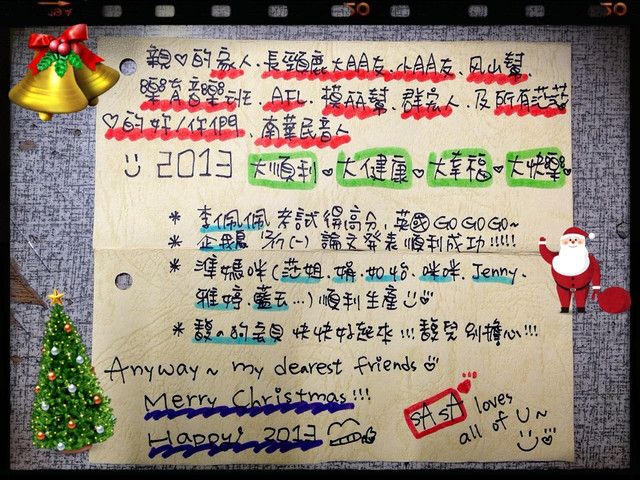 親♡的家人.長頸鹿大AA友.小AA友.风山幫.
樂育音樂班.AFL.摸AA幫.群家人.及所有莎莎
♡的好伙伴們.南華民音人
2013 大順利♥大健康♥大幸福♥大快樂♥
* 李佩佩 考試得高分.英國GOGOGO~
* 論文發表順利成功!!!!!
* 準媽咪(莊姐.娟.如怡.咪咪.Jenny.
雅婷.藍天...)順利生產
* 馥的 快快好起來!!!馥兒別擔心!!!
Anyway~ my dearest friends
Merry Christmas!!!
Happy! 2013
SASA loves
all of U~
50
50